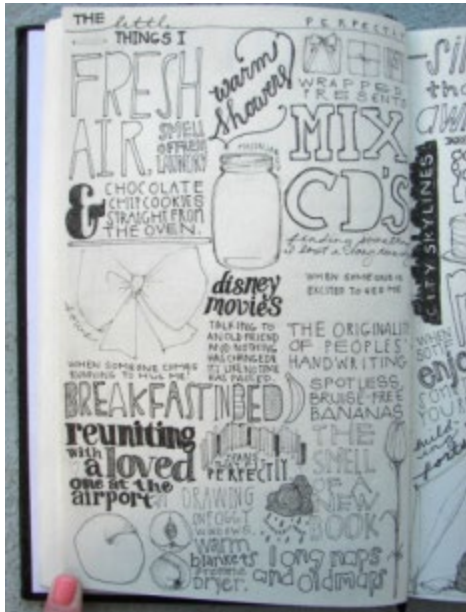 THE little
THINGS I
FRESH
AIR.
SMELL
OF FRESH
LAUNDRY
& CHOCOLATE
CHIP COOKIES
STRAIGHT FROM
THE OVEN.
warm
showers
PERFECTLY
WRAPPED
PRESENTS
MIX
CD'S
disney
movies
WHEN SOMEONE IS
EXCITED TO SEE ME
bows
WHEN SOMEONE COMES
RUNNING TO HUG ME!
TALKING TO
AN OLD FRIEND
AND NOTHING
HAS CHANGED
LIKE NO TIME
HAS PASSED.
THE ORIGINALITY
OF PEOPLES'
HANDWRITING
BREAKFAST IN BED
SPOTLESS,
BRUISE-FREE
BANANAS
reuniting
with a loved
one at the
airport
PERFECTLY
THE
SMELL
OF A
NEW
BOOK
DRAWING
ON FOGGY
WINDOWS.
warm
blankets
from the
dryer.
long naps
and old maps
CITY SKYLINES
enjoy